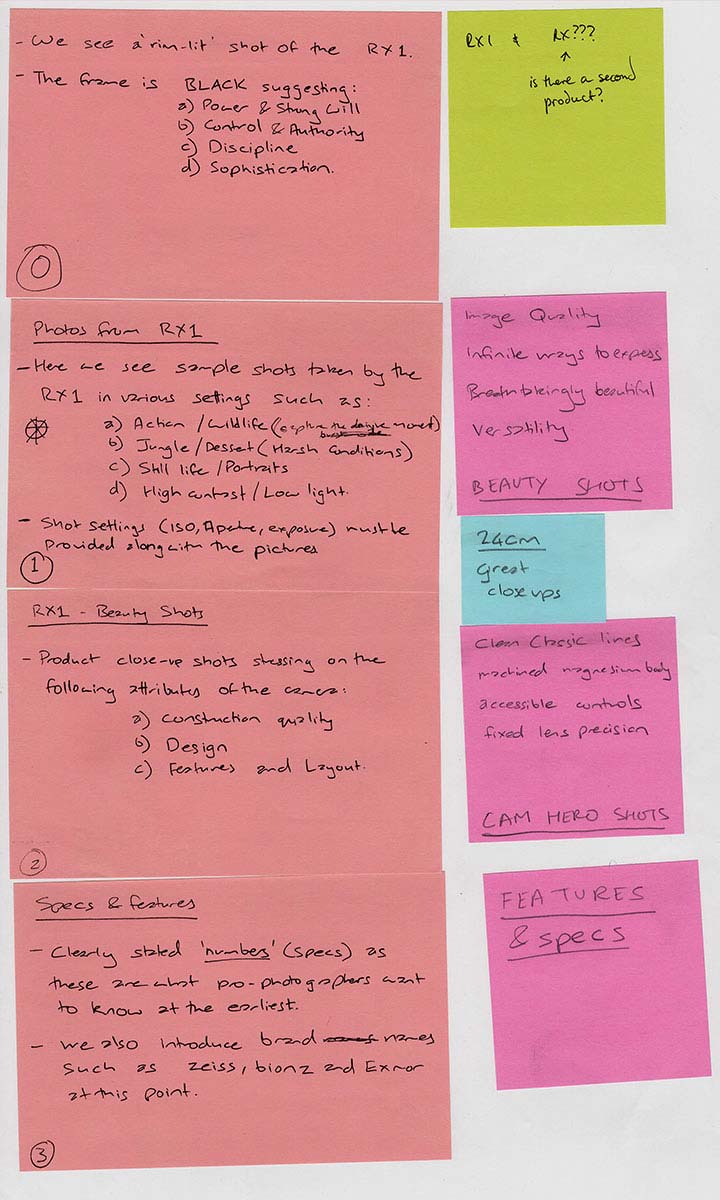 - We see a 'rim-lit' shot of the RX1.
- The frame is BLACK suggesting:
a) Power & Strong Will
b) Control & Authority
c) Discipline
d) Sophistication.
0
RX1 & RX???
is there a second
product?
Photos from RX1
- Here we see sample shots taken by the
RX1 in various settings such as:
a) Action / Wildlife (capture the moment)
b) Jungle / Dessert (Harsh Conditions)
c) Still life / Portraits
d) High contrast / Low light.
- Shot settings (ISO, Aperture, exposure) must be
provided along with the pictures
1
Image Quality
Infinite ways to express
Breathtakingly beautiful
Versatility
BEAUTY SHOTS
24cm
great
close ups
RX1 - Beauty Shots
- Product close-up shots stressing on the
following attributes of the camera:
a) construction quality
b) Design
c) Features and Layout.
2
Clean Classic lines
machined magnesium body
accessible controls
fixed lens precision
CAM HERO SHOTS
Specs & features
- Clearly stated 'numbers' (specs) as
these are what pro-photographers want
to know at the earliest.
- We also introduce brand names
such as Zeiss, bionz and Exmor
at this point.
3
FEATURES
& specs